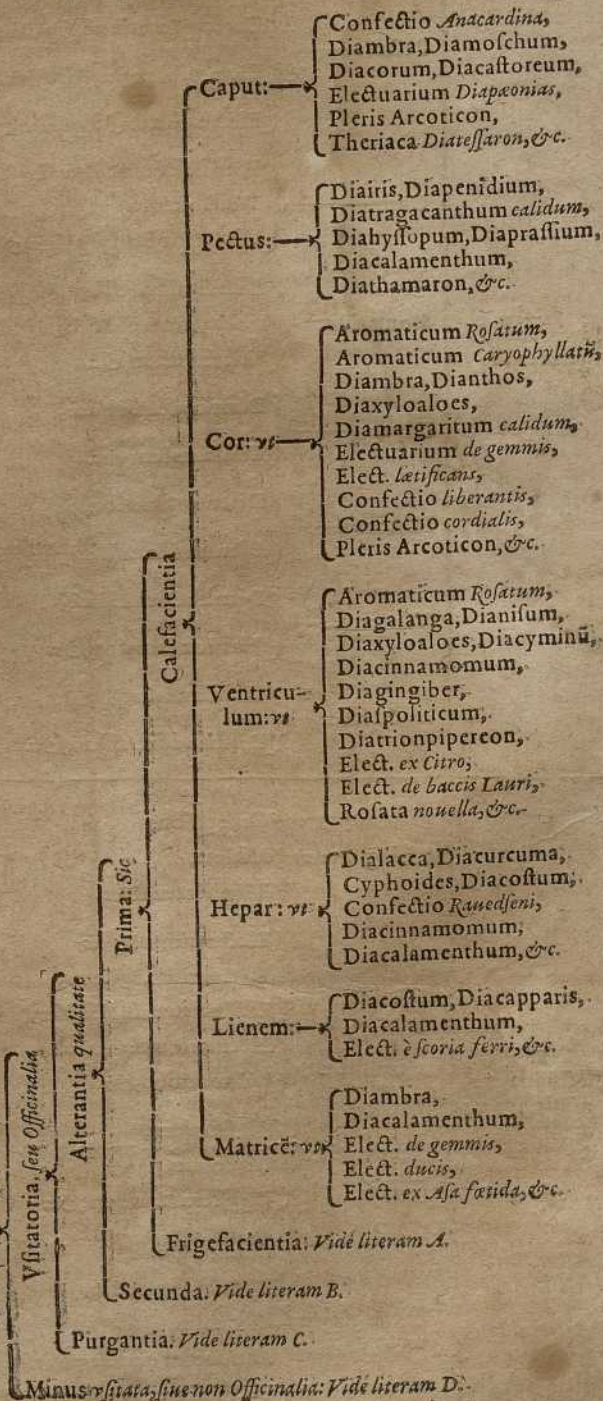 Confectio Anacardina,
Diambra, Diamoſchum,
Diacorum, Diacaſtoreum,
Electuarium Diapæonias,
Pleris Arcoticon,
Theriaca Diateſſaron, &c.
Caput:
Diairis, Diapenidium,
Diatragacanthum calidum,
Diahyſſopum, Diapraſſium,
Diacalamenthum,
Diathamaron, &c.
Pectus:
Aromaticum Roſatum,
Aromaticum Caryophyllatũ,
Diambra, Dianthos,
Diaxyloaloes,
Diamargaritum calidum,
Electuarium de gemmis,
Elect. lætificans,
Confectio liberantis,
Confectio cordialis,
Pleris Arcoticon, &c.
Cor: vt
Aromaticum Roſatum,
Diagalanga, Dianiſum,
Diaxyloaloes, Diacyminũ,
Diacinnamomum,
Diagingiber,
Diaſpoliticum,
Diatrionpipereon,
Elect. ex Citro,
Elect. de baccis Lauri,
Roſata nouella, &c.
Ventricu-
lum: vt
Dialacca, Diacurcuma,
Cyphoides, Diacoſtum,
Confectio Rauedſeni,
Diacinnamomum,
Diacalamenthum, &c.
Hepar: vt
Diacoſtum, Diacapparis,
Diacalamenthum,
Elect. è ſcoria ferri, &c.
Lienem:
Diambra,
Diacalamenthum,
Elect. de gemmis,
Elect. ducis,
Elect. ex Aſa fœtida, &c.
Matricẽ: vt
Calefacientia
Frigefacientia: Vide literam A.
Prima: Sic
Secunda. Vide literam B.
Alterantia qualitate
Purgantia. Vide literam C.
Vſitatoria, ſeu Officinalia
Minus vſitata, ſiue non Officinalia: Vide literam D.